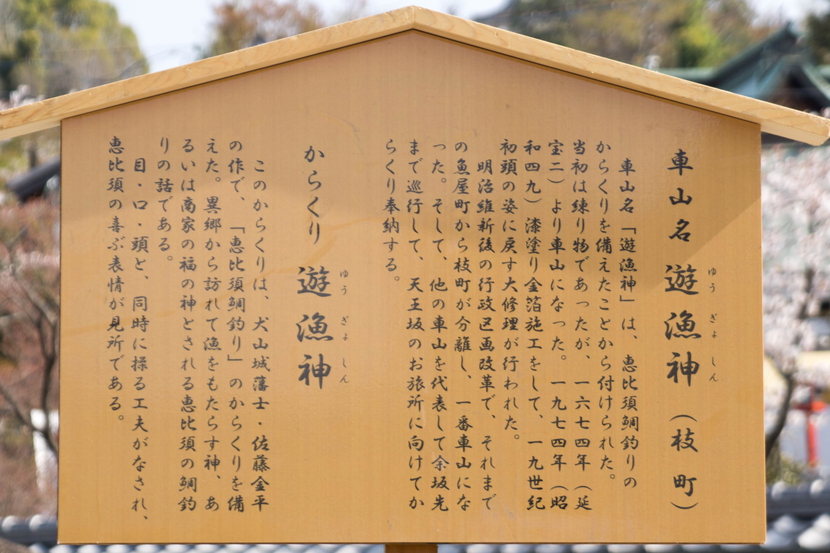 車山名 遊漁神（枝町）
ゆう ぎょ しん
車山名「遊漁神」は、恵比須鯛釣りの
からくりを備えたことから付けられた。
当初は練り物であったが、一六七四年（延
宝二）より車山になった。一九七四年（昭
和四九）漆塗り金箔施工をして、一九世紀
初頭の姿に戻す大修理が行われた。
明治維新後の行政区画改革で、それまで
の魚屋町から枝町が分離し、一番車山にな
った。そして、他の車山を代表して余坂先
まで巡行して、天王坂のお旅所に向けてか
らくり奉納する。
からくり 遊漁神
ゆう ぎょ しん
このからくりは、犬山城藩士・佐藤金平
の作で、「恵比須鯛釣り」のからくりを備
えた。異郷から訪れて漁をもたらす神、あ
るいは商家の福の神とされる恵比須の鯛釣
りの話である。
目・口・頭と、同時に操る工夫がなされ、
恵比須の喜ぶ表情が見所である。